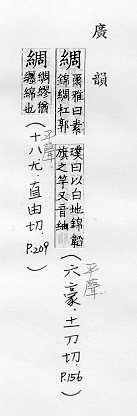 廣韻
綢 爾雅曰素
錦綢杠郭
璞曰以白地錦韜
旗之竿又音紬
平聲
(六豪·土刀切. P.156)
綢 綢繆猶
纏綿也
平聲
(十八尤·直由切. P.209)